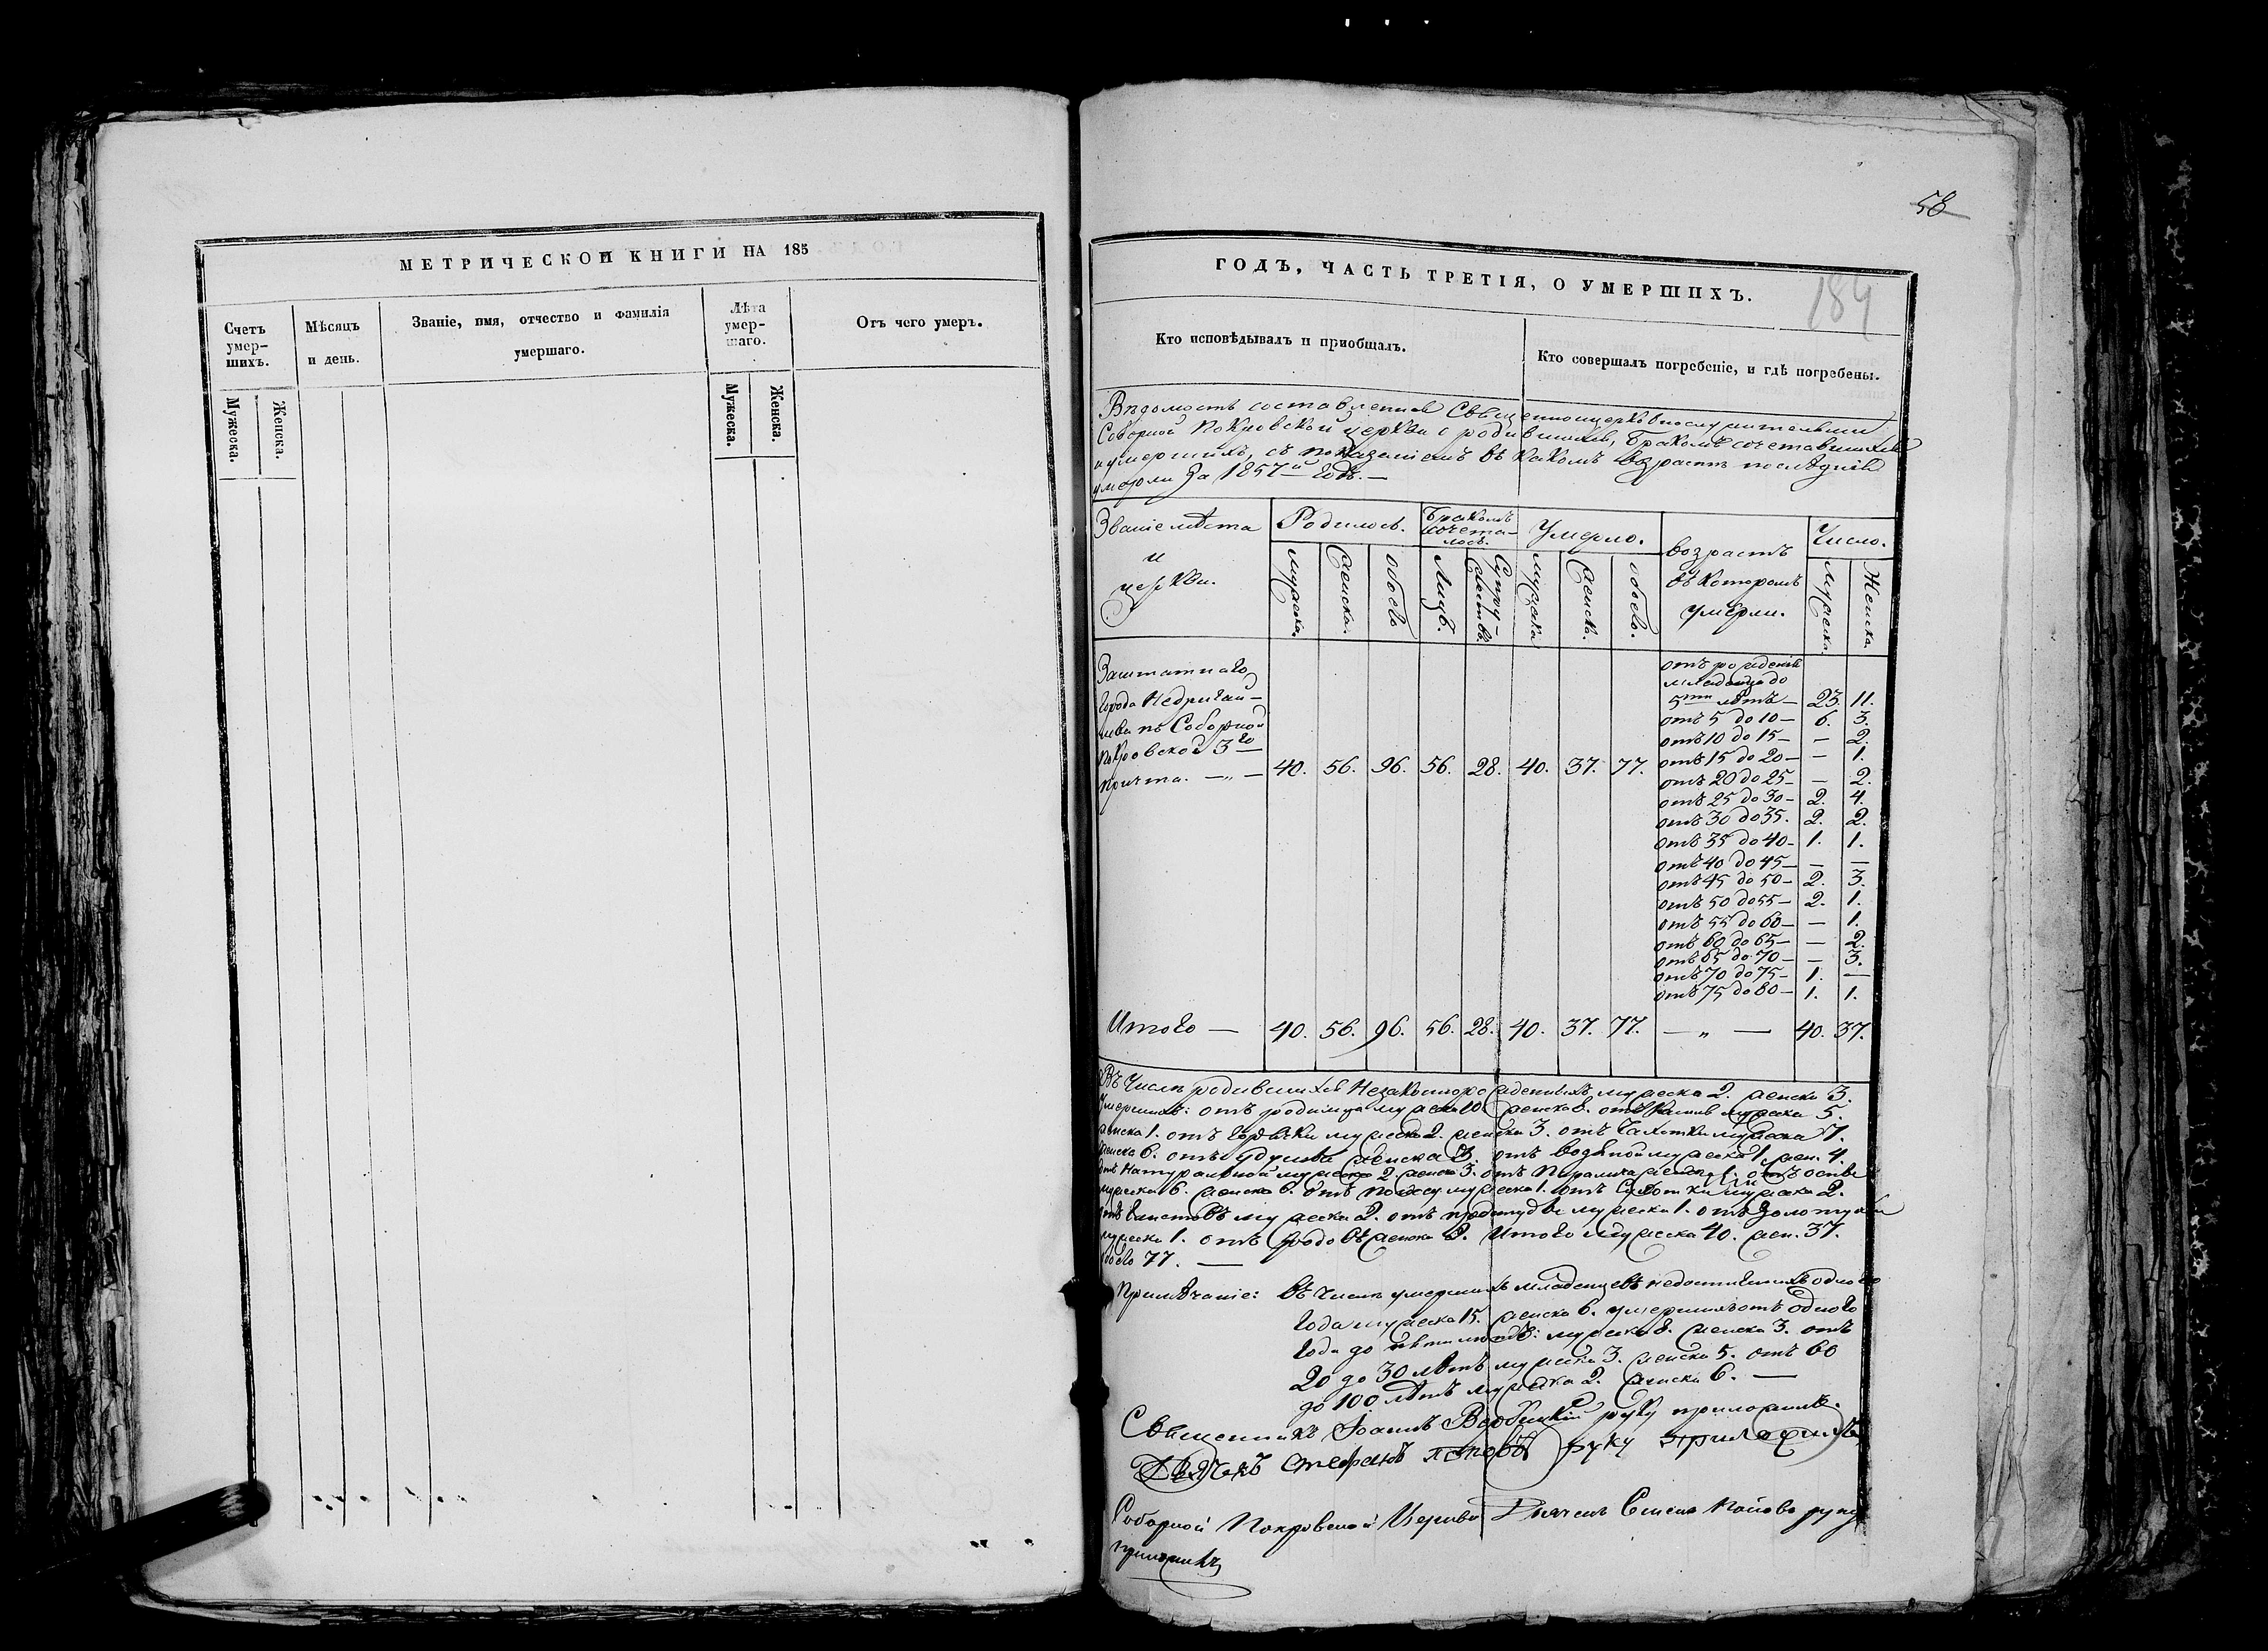 58
МЕТРИЧЕСКОЙ КНИГИ НА 185
Счетъ умер-
шихъ.
Мѣсяцъ
и день.
Званіе, имя, отчество и фамилія
умершаго.
Лѣта
умер-
шаго.
Отъ чего умеръ.
Мужеска.
Женска.
Мужеска.
Женска.
ГОДЪ, ЧАСТЬ ТРЕТІЯ, О УМЕРШИХЪ.
184
Кто исповѣдывалъ и пріобщалъ.
Кто совершалъ погребеніе, и гдѣ погребены.
Вѣдомость составленная Священноцерковнослужительми
Соборной Покровской церкви о родившихся, бракомъ сочетавшихся
и умершихъ, съ показаніемъ въ какомъ возрастѣ послѣдніе
умерли за 1857й годъ. —
Званіе мѣста
и
церкви.
Родилось.
Бракомъ
сочета-
лось.
Умерло.
возрастъ
въ которомъ
умерли.
Число.
мужеска.
женска.
обоего
Лицъ.
Супру-
жествъ.
мужеска
женска.
обоего.
мужеска.
Женска.
Заштатнаго
города Недригай-
лова въ Соборной
Покровской 3го
причта. — „ —
40. 56. 96. 56. 28. 40. 37. 77.
отъ рожденія
младенца до
5ти лѣтъ — 23. 11.
отъ 5 до 10 — 6. 3.
отъ 10 до 15 — — 2.
отъ 15 до 20 — — 1.
отъ 20 до 25 — — 2.
отъ 25 до 30 — 2. 4.
отъ 30 до 35. 2. 2.
отъ 35 до 40 — 1. 1.
отъ 40 до 45 — — —
отъ 45 до 50 — 2. 3.
отъ 50 до 55 — 2. 1.
отъ 55 до 60 — — 1.
отъ 60 до 65 — — 2.
отъ 65 до 70 — — 3.
отъ 70 до 75 — 1. —
отъ 75 до 80 — 1. 1.
Итого — 40. 56. 96. 56. 28. 40. 37. 77. — „ — 40. 37.
Въ числѣ родившихся Незаконорожденныхъ мужеска 2. женска 3.
Умершихъ: отъ родимца мужеска 10. женска 8. отъ кашля мужеска 5.
женска 1. отъ горячки мужеска 2. женска 3. отъ чахотки мужеска 7.
женска 6. отъ удушья женска 3. отъ водяной мужеска 1. жен. 4.
отъ Натуральной мужеска 2. женска 3. отъ Паралича женска 1. отъ оспы
мужеска 6. женска 6. отъ поносу мужеска 1. отъ сухотки мужеска 2.
отъ глистовъ мужеска 2. отъ простуды мужеска 1. отъ золотухи
мужеска 1. отъ родовъ женска 2. Итого мужеска 40. жен. 37.
обоего 77. —
Примѣчаніе: въ числѣ умершихъ младенцевъ недостигшихъ одного
года мужеска 15. женска 6. умершихъ отъ одного
года до пяти лѣтъ: мужеска 8. женска 3. отъ
20 до 30 лѣтъ мужеска 3. женска 5. отъ 60
до 100 лѣтъ мужеска 2. женска 6. —
Священникъ Іоаннъ Вербицкій руку приложилъ.
Дьячекъ Стефанъ Поповъ руку приложилъ
Соборной Покровской Церкви Поповъ руку
приложилъ